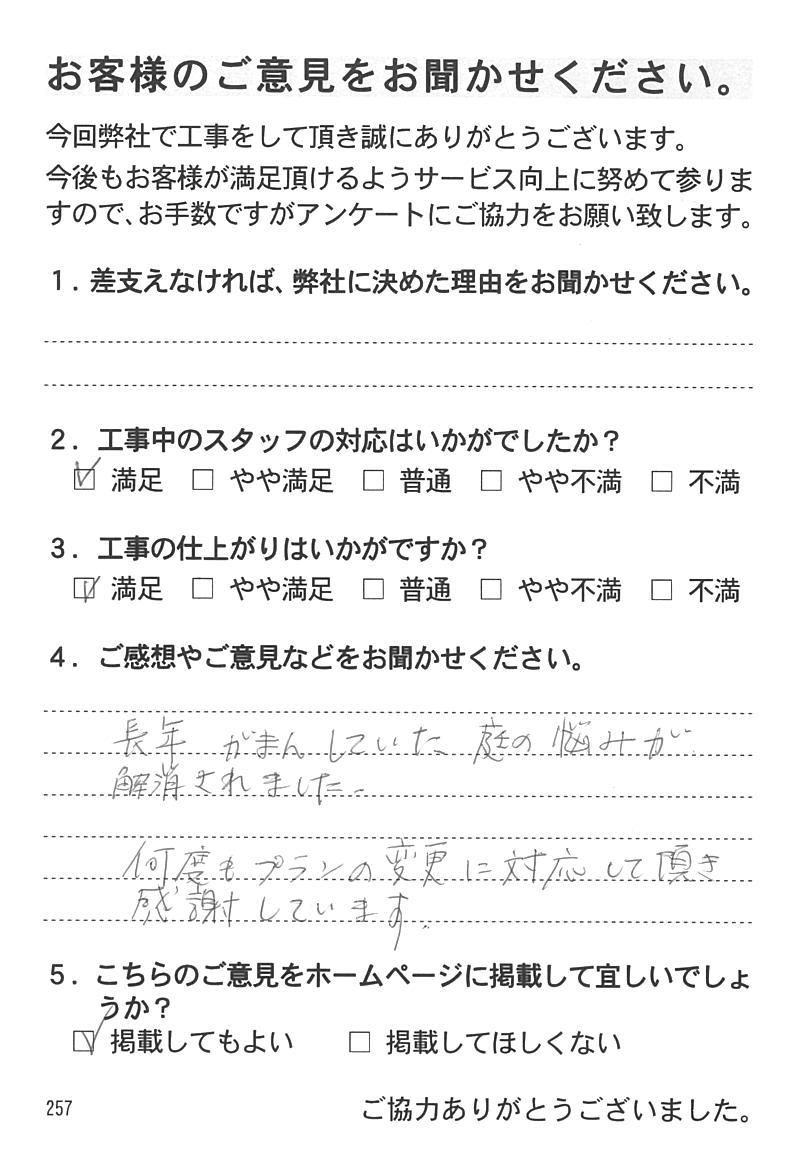 お客様のご意見をお聞かせください。
今回弊社で工事をして頂き誠にありがとうございます。
今後もお客様が満足頂けるようサービス向上に努めて参りま
すので、お手数ですがアンケートにご協力をお願い致します。
1．差支えなければ、弊社に決めた理由をお聞かせください。
2．工事中のスタッフの対応はいかがでしたか？
☑ 満足 □ やや満足 □ 普通 □ やや不満 □ 不満
3．工事の仕上がりはいかがですか？
☑ 満足 □ やや満足 □ 普通 □ やや不満 □ 不満
4．ご感想やご意見などをお聞かせください。
長年 がまんしていた 庭の悩みが
解消されました。
何度もプランの変更に対応して頂き
感謝しています。
5．こちらのご意見をホームページに掲載して宜しいでしょ
うか？
☑ 掲載してもよい □ 掲載してほしくない
257
ご協力ありがとうございました。